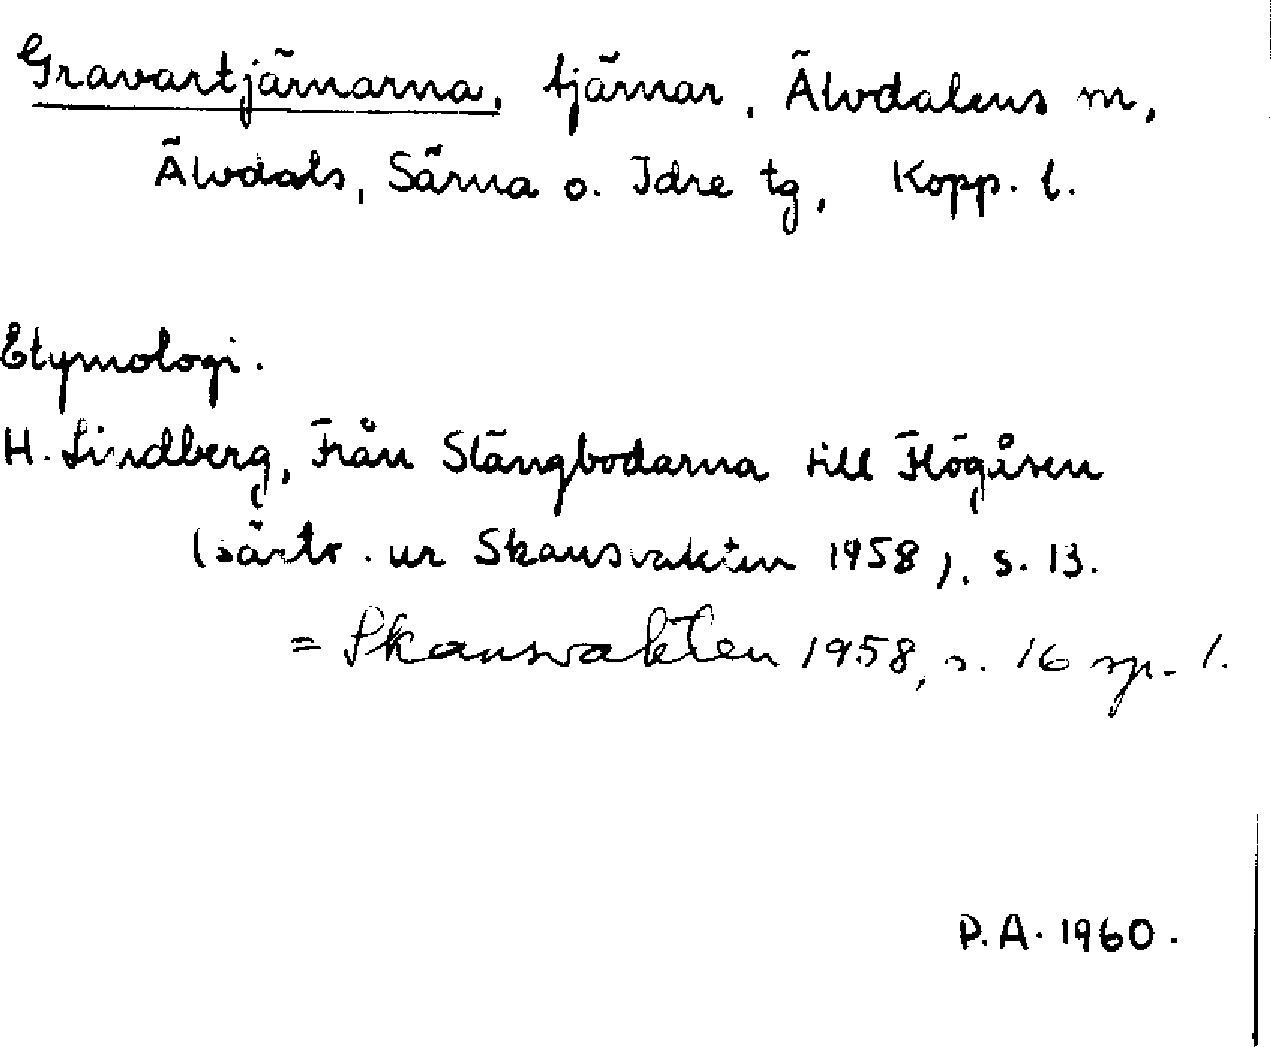 Gravartjärnarna, tjärnar, Älvdalens m,
Älvdals, Särna o. Idre tg, Kopp. l.
Etymologi.
H. Lindberg, Från Stängbodarna till Flögåsen
(särtr. ur Skansvakten 1958), s. 13.
= Skansvakten 1958, s. 16 sp. 1.
P.A. 1960.